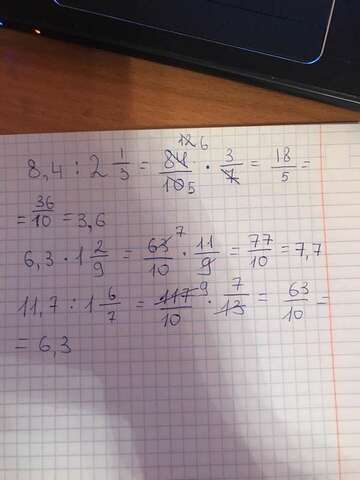 8,4 : 2 1/3 = 84/10 · 3/7 = 18/5 =
12 6
5
= 36/10 = 3,6
6,3 · 1 2/9 = 63/10 · 11/9 = 77/10 = 7,7
7
11,7 : 1 6/7 = 117/10 · 7/13 = 63/10 =
9
= 6,3